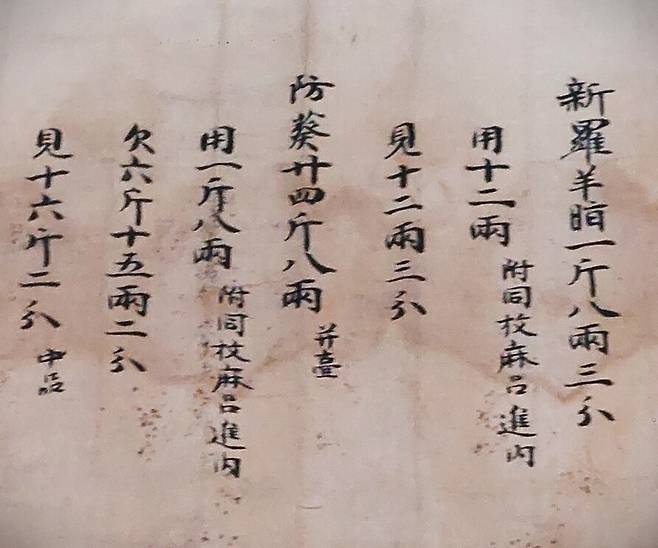 新羅羊脂一斤八兩三分
用十二兩 附同枚麻呂進内
見十二兩三分
防葵廿四斤八兩 并臺
用一斤八兩 附同枚麻呂進内
欠六斤十五兩二分
見十六斤二分 中品